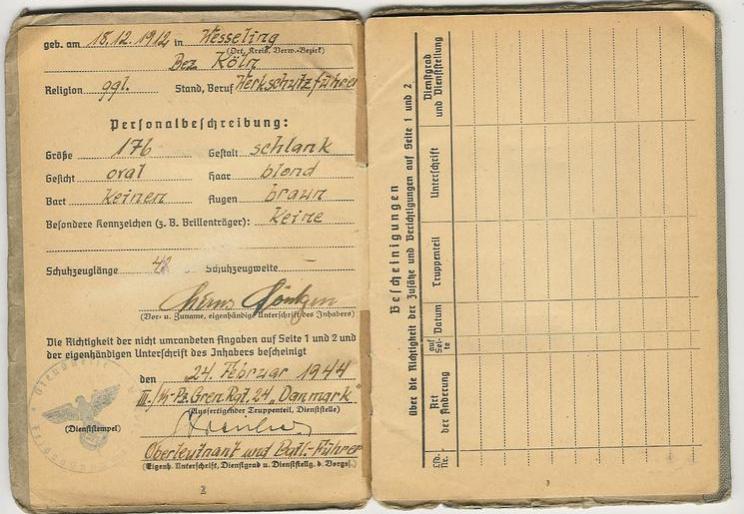 geb. am 18.12.1912 in Wesseling
(Ort, Kreis, Verw.-Bezirk)
Bez. Köln
Religion ggl. Stand, Beruf Werkschutzführer
Personalbeschreibung:
Größe 176 Gestalt schlank
Gesicht oval Haar blond
Bart keinen Augen braun
Besondere Kennzeichen (z. B. Brillenträger): Keine
Schuhzeuglänge 42 Schuhzeugweite
(Vor- u. Zuname, eigenhändige Unterschrift des Inhabers)
Die Richtigkeit der nicht umrandeten Angaben auf Seite 1 und 2 und
der eigenhändigen Unterschrift des Inhabers bescheinigt
den 24. Februar 1944
III./ Pz. Gren. Rgt. 24 „Danmark“
(Ausfertigender Truppenteil, Dienststelle)
(Dienststempel)
Oberleutnant und Batl.-Führer
(Eigenh. Unterschrift, Dienstgrad u. Dienststellg. d. Vorges.)
2
Bescheinigungen
über die Richtigkeit der Zusätze und Berichtigungen auf Seite 1 und 2
Lfd. Nr.
Art der Änderung
auf Seite
Datum
Truppenteil
Unterschrift
Dienstgrad und Dienststellung
3